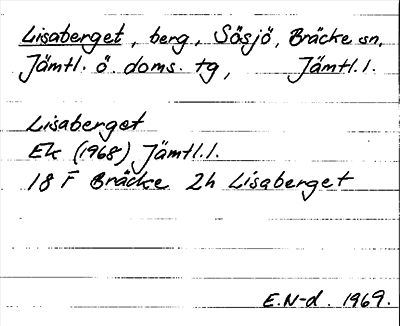 Lisaberget, berg, Sösjö, Bräcke sn,
Jämtl. ö. doms. tg, Jämtl. l.
Lisaberget
Ek (1968) Jämtl. l.
18 F Bräcke 2h Lisaberget
E.N-d. 1969.